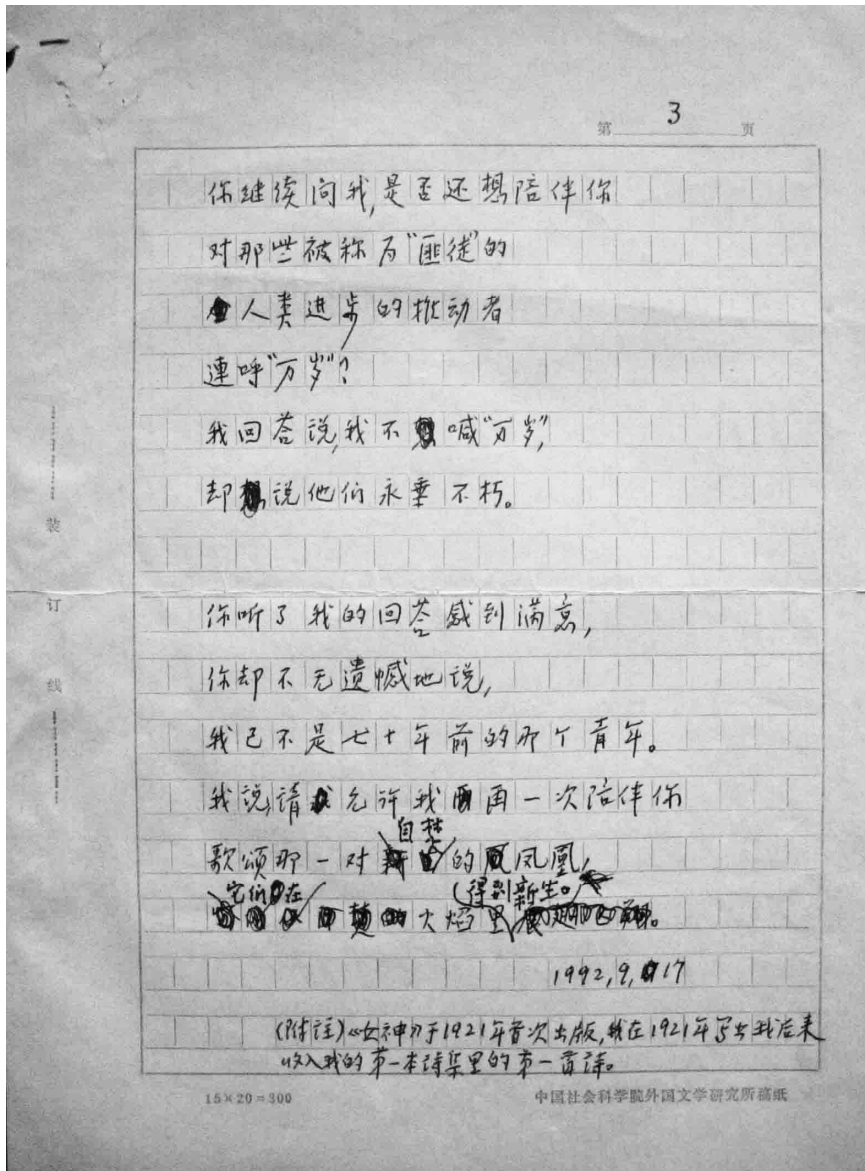 第 3 页
你继续问我,是否还想陪伴你
对那些被称为“匪徒”的
人类进步的推动者
連呼“万岁”?
我回答说,我不喊“万岁”,
却说他们永垂不朽。
你听了我的回答感到满意,
你却不无遗憾地说,
我已不是七十年前的那个青年。
我说,请允许我再一次陪伴你
自焚
歌颂那一对的凤凰,
它们在 得到新生。
火焰里
1992,9,17
(附註)《女神》于1921年首次出版,我在1921年写出我后来
收入我的第一本诗集里的第一首诗。
装订线
15×20=300
中国社会科学院外国文学研究所稿纸